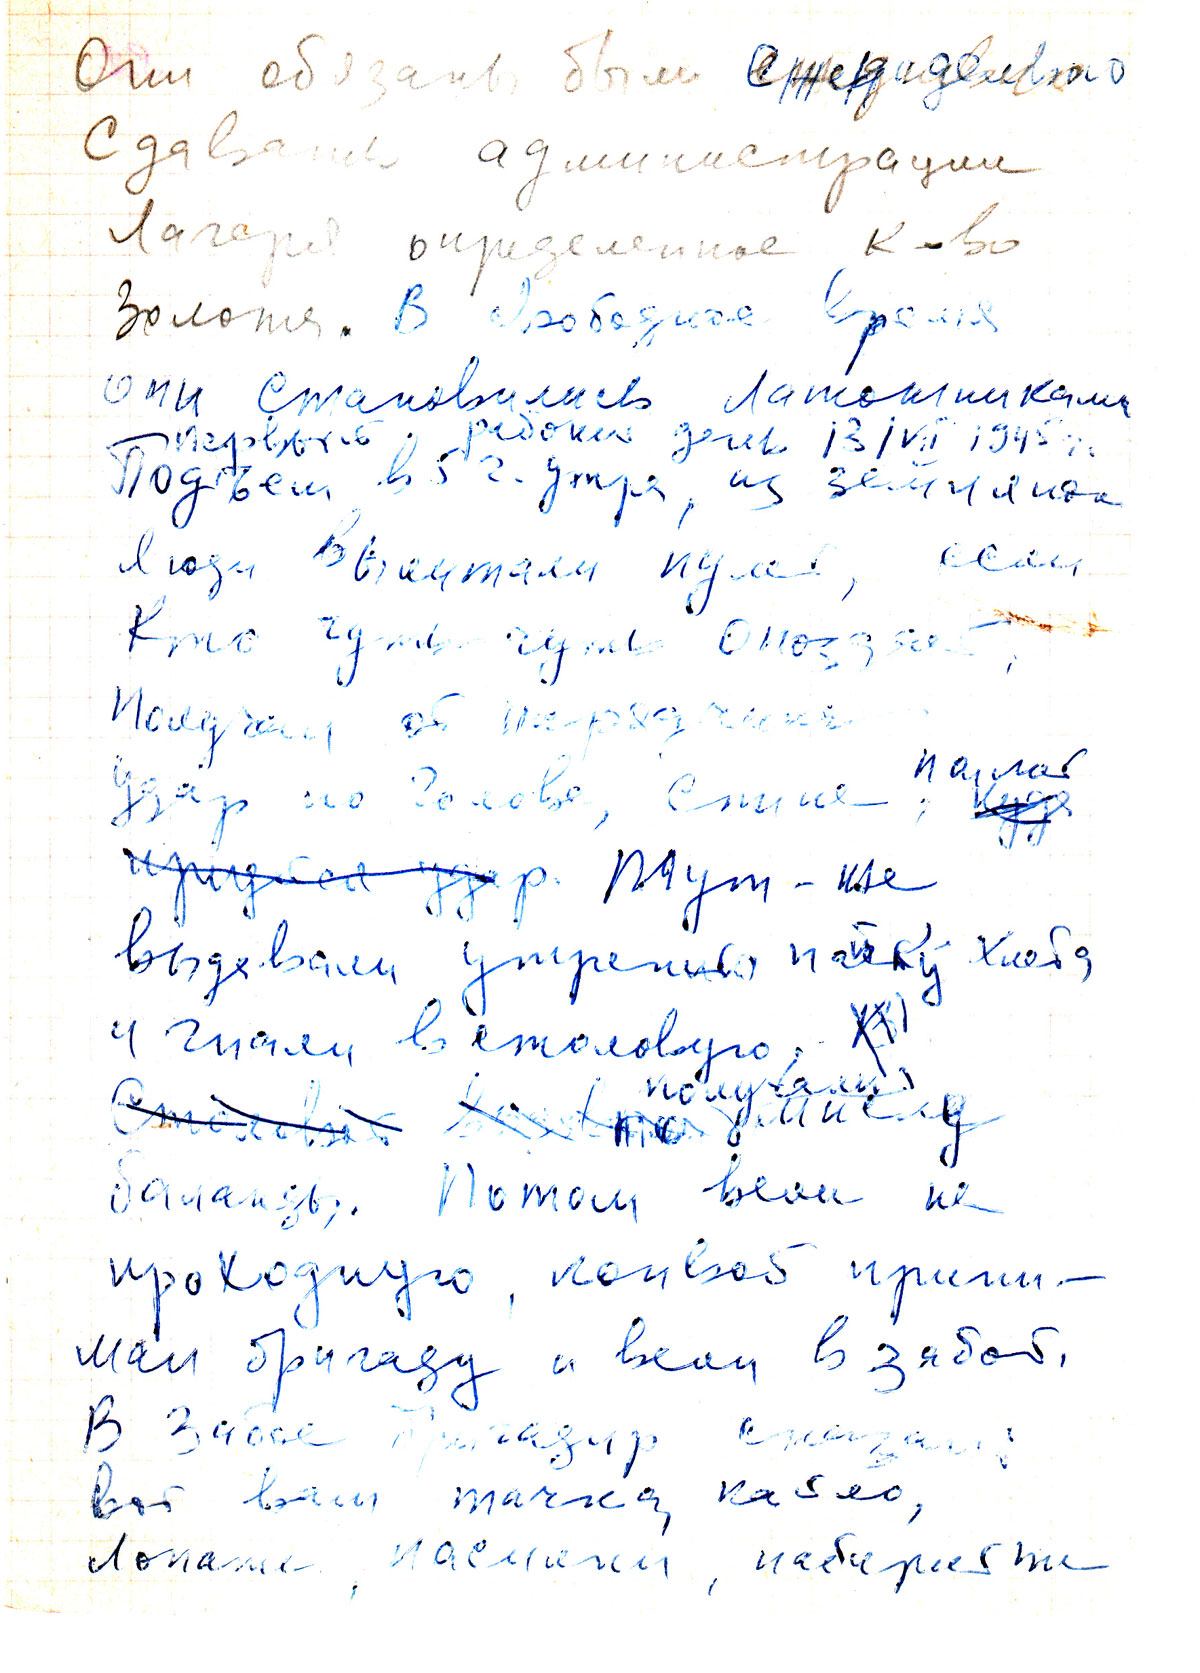 Они обязаны были еженедельно
сдавать администрации
лагеря определенное к-во
золота. В свободное время
они становились лотошниками
первый рабочий день 13/VII 1945 г.
Подъем в 5 ч. утра, из землянок
люди вылетали пулей, если
кто чуть-чуть опоздает,
получал от нарядчика
удар по голове, спине, палкой куда
придется удар. Тут-же
выдавали утреннюю пайку хлеба
и гнали в столовую.
получали
Столовой по миске
баланды. Потом вели на
проходную, конвой прини-
мал бригаду и вели в забой.
В забое бригадир сказал:
вот вам тачка, кайло,
лопата, носилки, набирайте